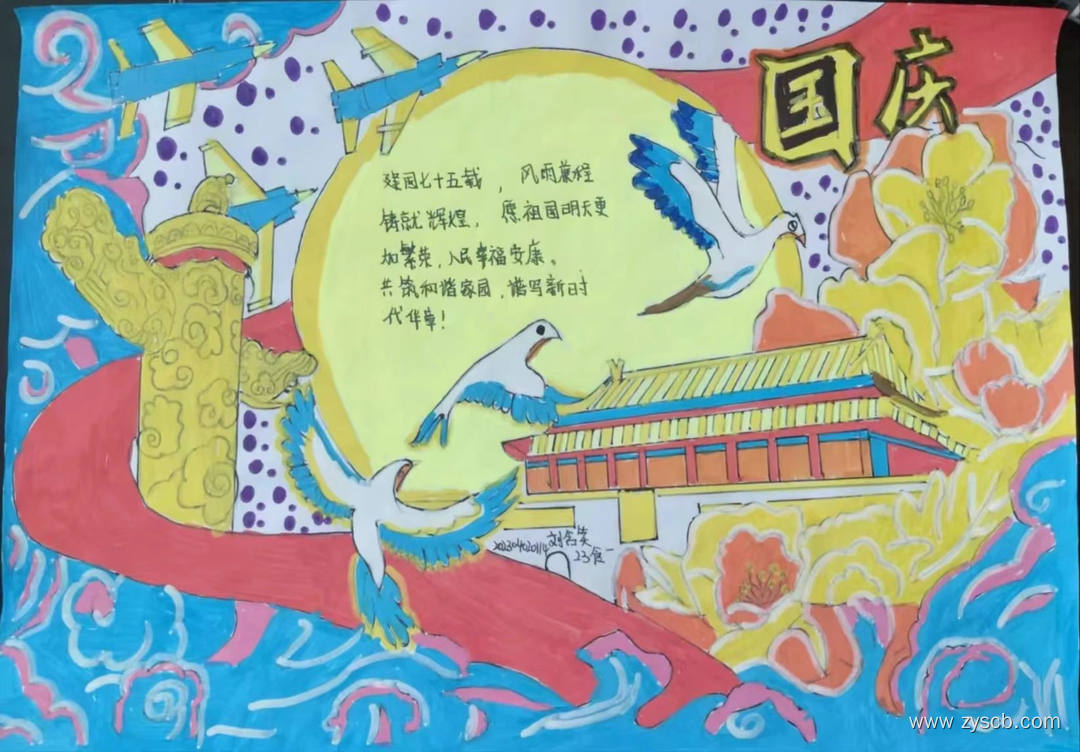 国庆
建国七十五载，风雨兼程
铸就辉煌，愿祖国明天更
加繁荣，人民幸福安康。
共筑和谐家园，谱写新时
代华章！
202304020114 刘含笑
23食一
www.zyscb.com